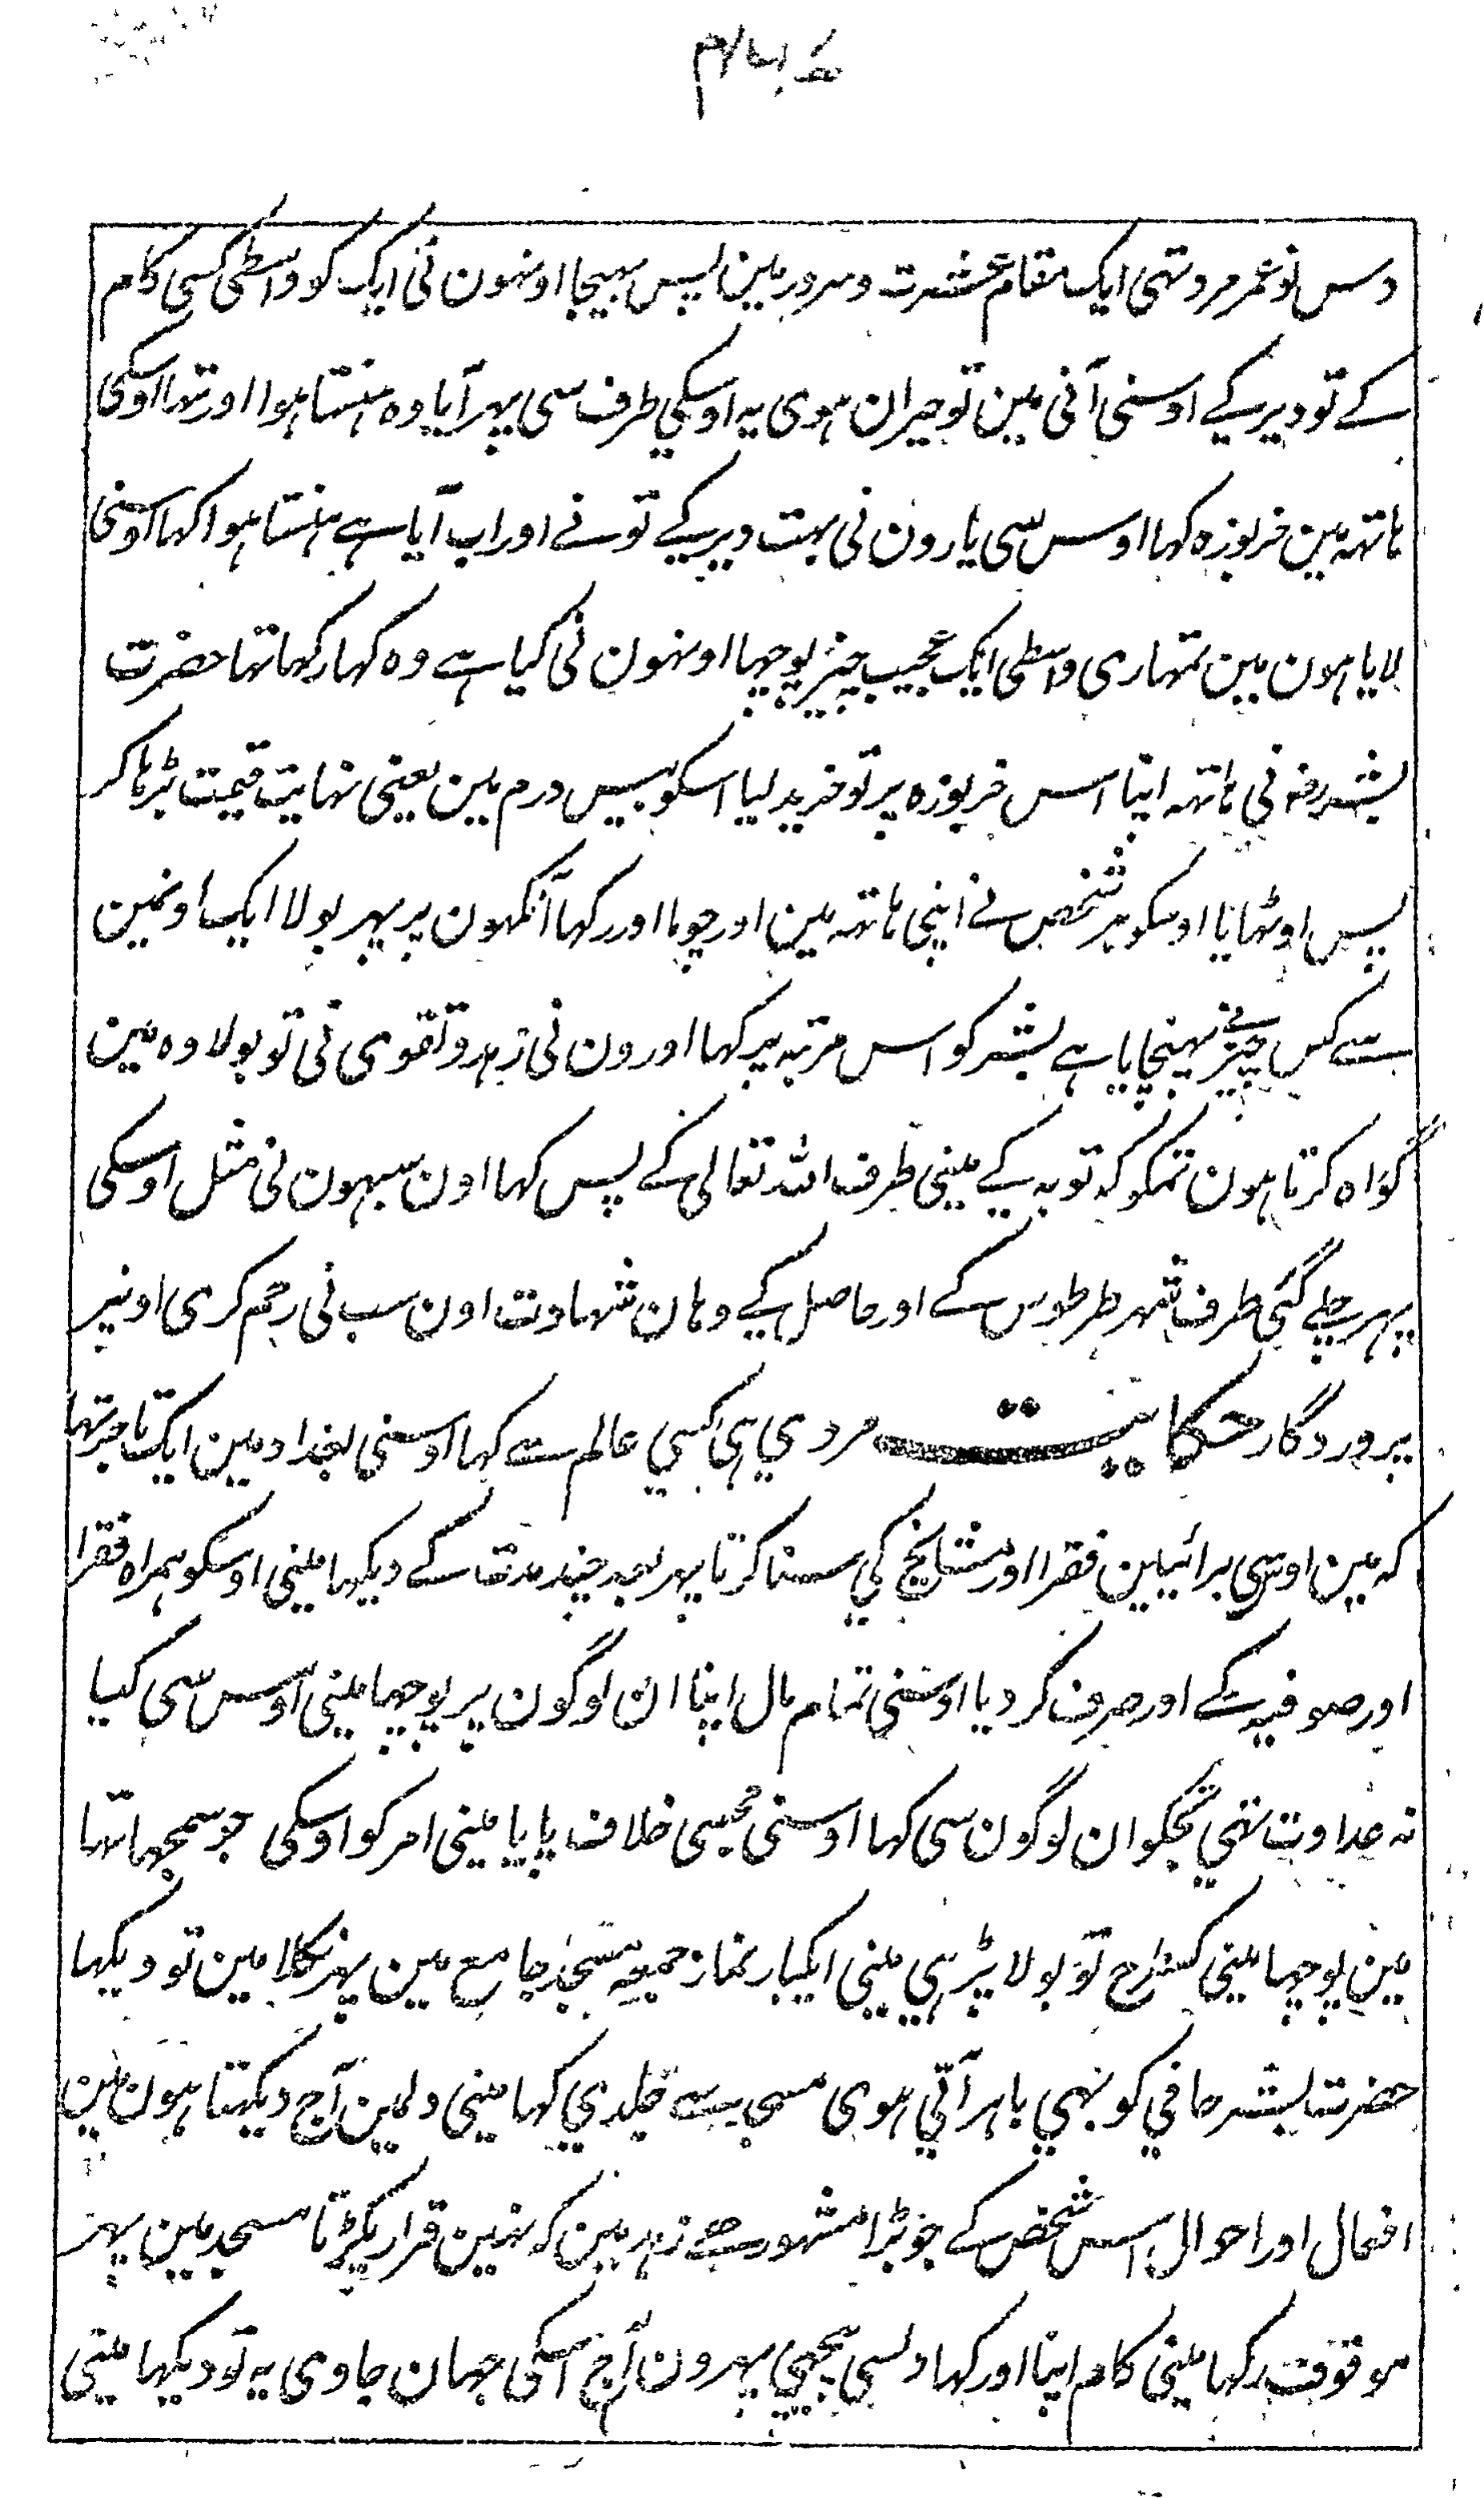 دس نو عمر مرد تہی ایک مقام عشرت و سرور مین پس بہیجا اونہون نی ایک کو واسطی کسی کام
کے تو دیر کے اوسنی آنی مین تو حیران ہوی یہ اوسکی طرف سی پہر آیا وہ ہنستا ہوا اور تہا اوسکی
ہاتہہ مین خربوزہ کہا اوس سی یارون نی بہت دیر کے تو نے اور اب آیا ہے ہنستا ہوا کہا اوسنی
لایا ہون مین تمہاری واسطی ایک عجیب چیز پوچہا اونہون نی کیا ہے وہ کہا رکہا تہا حضرت
بشر رضہ نی ہاتہہ اپنا اس خربوزہ پر تو خرید لیا اسکو بیس درم مین یعنی نہایت قیمت بڑہا کر
پس اوٹہایا اوسکو ہر شخص نے اپنی ہاتہہ مین اور چوما اور رکہا آنکہون پر پہر بولا ایک اونمین
سے کس چیز نے پہنچایا ہے بشر کو اس مرتبہ پر کہا اورون نی زہد و تقوی نی تو بولا وہ مین
گواہ کرتا ہون تمکو کہ توبہ کے مینی طرف اللہ تعالی کے پس کہا اون سبہون نی مثل اوسکی
پہر چلے گئی طرف شہر طرطوس کے اور حاصل کے وہان شہادت اون سب نی رحم کری اونپر
پروردگار حکایت مروی ہی کسی عالم سے کہا اوسنی بغداد مین ایک تاجر تہا
کہ مین اوسی برائیین فقرا اور مشایخ کی سنا کرتا پہر بعد چند مدت کے دیکہا مینی اوسکو ہمراہ فقرا
اور صوفیہ کے اور صرف کر دیا اوسنی تمام مال اپنا ان لوگون پر پوچہا مینی اوس سی کیا
نہ عداوت تہی تجکو ان لوگون سی کہا اوسنی مجسی خلاف پایا مینی امر کو اوسکی جو سمجہا تہا
مین پوچہا مینی کسطرح تو بولا پڑہی مینی ایکبار نماز جمعہ مسجد جامع مین پہر نکلا مین تو دیکہا
حضرت بشر حافی کو بہی باہر آتی ہوی مسجد سے جلدی کہا مینی دلمین آج دیکہتا ہون مین
افعال اور احوال اس شخص کے جو بڑا مشہور ہے زہد مین کہ نہین قرار پکڑتا مسجد مین پہر
موقوف رکہا مینی کام اپنا اور کہا دلسی پیچہی پہرون آج اسکی جہان جاوی یہ تو دیکہا مینی